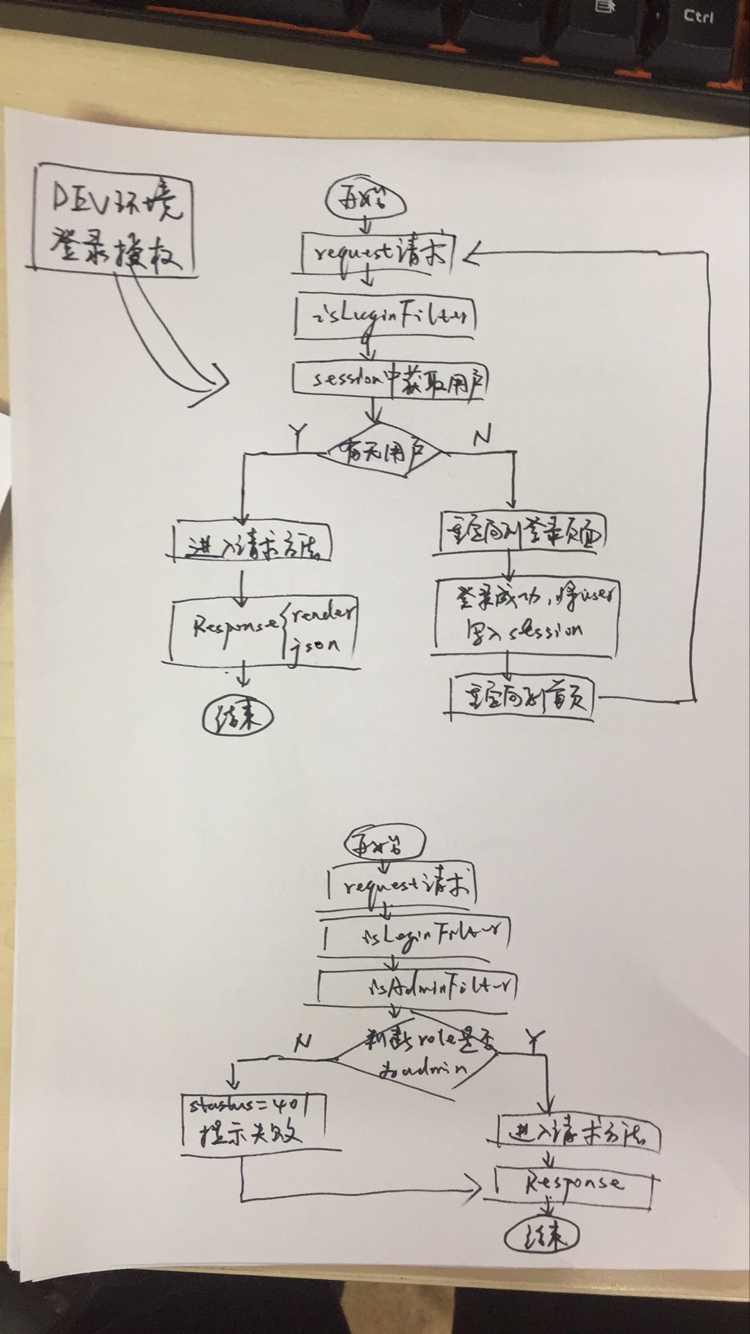 Ctrl
DEV环境
登录授权
开始
request请求
isLoginFilter
session中获取用户
有无用户
Y
N
进入请求方法
Response { render
json
结束
重定向到登录页面
登录成功,将user
写入session
重定向到首页
开始
request请求
isLoginFilter
isAdminFilter
判断role是否
为admin
N
Y
status=401
提示失败
进入请求方法
Response
结束